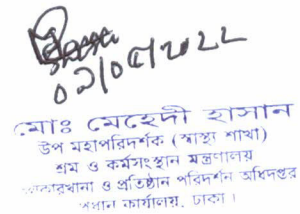 ০২/০৫/২০২২
মোঃ মেহেদী হাসান
উপ মহাপরিদর্শক (স্বাস্থ্য শাখা)
শ্রম ও কর্মসংস্থান মন্ত্রণালয়
কলকারখানা ও প্রতিষ্ঠান পরিদর্শন অধিদপ্তর
প্রধান কার্যালয়, ঢাকা।